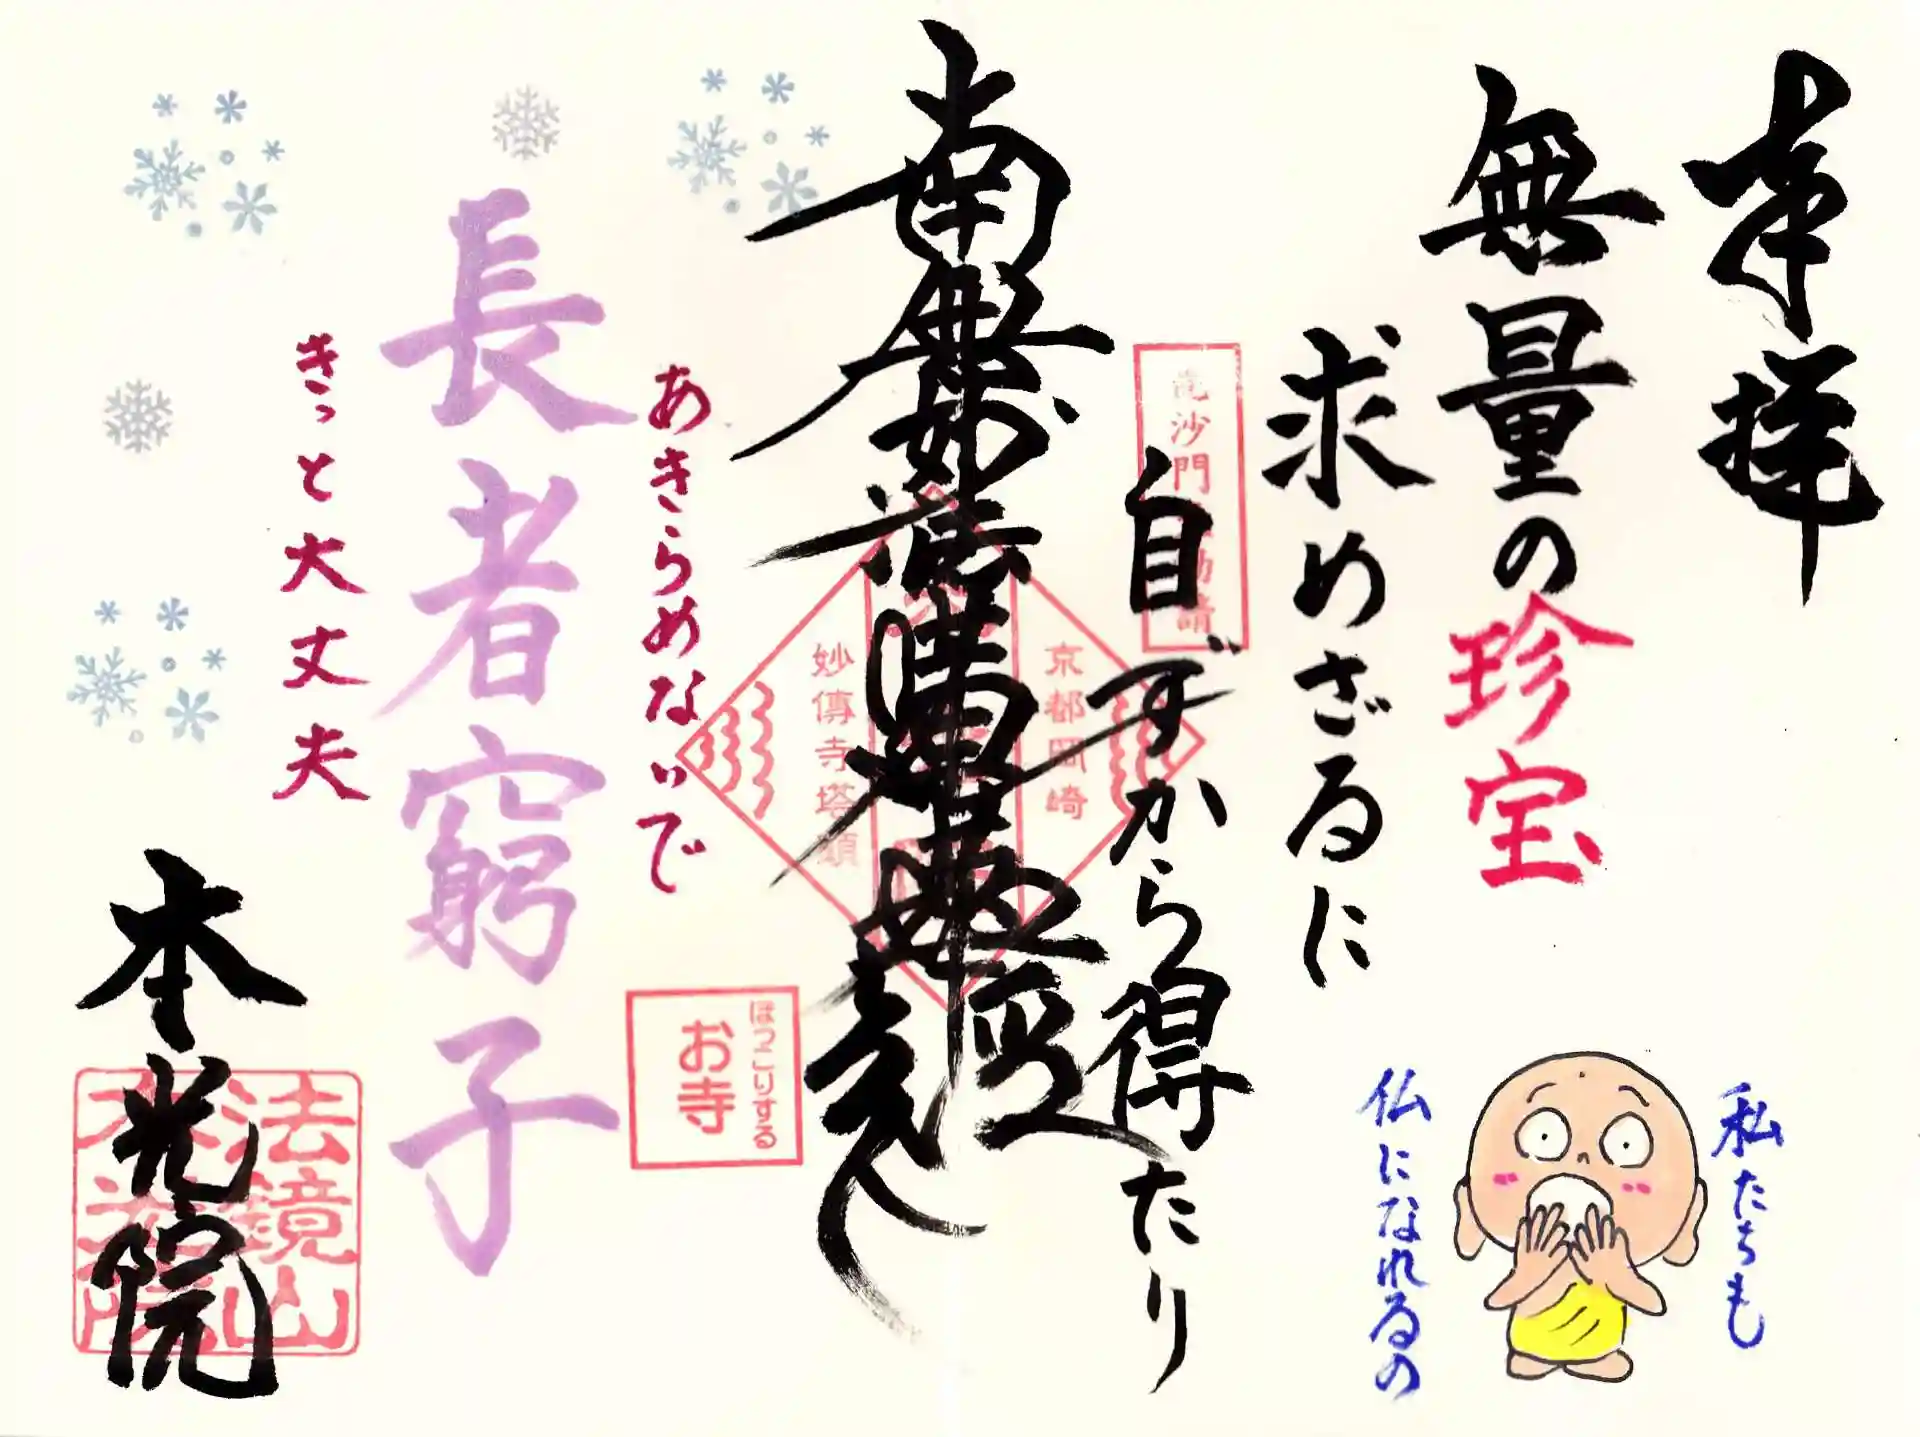 奉拝
無量の珍宝
求めざるに
自ずから得たり
私たちも
仏になれるの
毘沙門
勧請
南無妙法蓮華経
京都岡崎
妙傳寺塔頭
ほっこりする
お寺
あきらめないで
長者窮子
きっと大丈夫
本光院
法鏡山
本光院